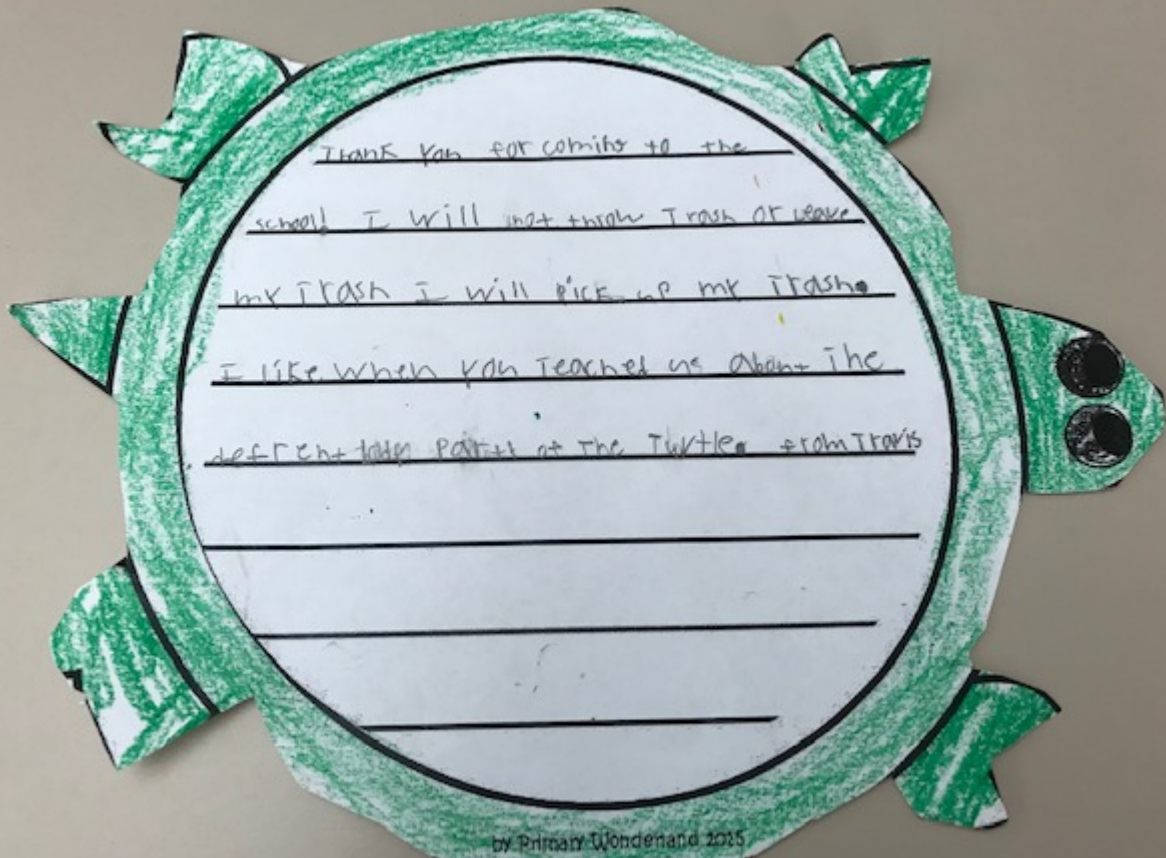 Thank you for coming to the
school! I will not throw Trash or Leave
my Trash I will pick up my Trash.
I like when you Teached us about The
defrent part of The Turtle. from Travis
by Primary Wondenand 2025